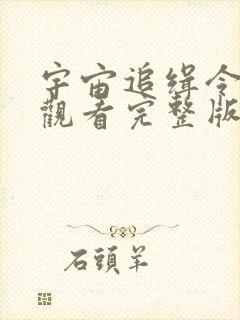 宇宙追缉令
觀看完整版
石頭羊